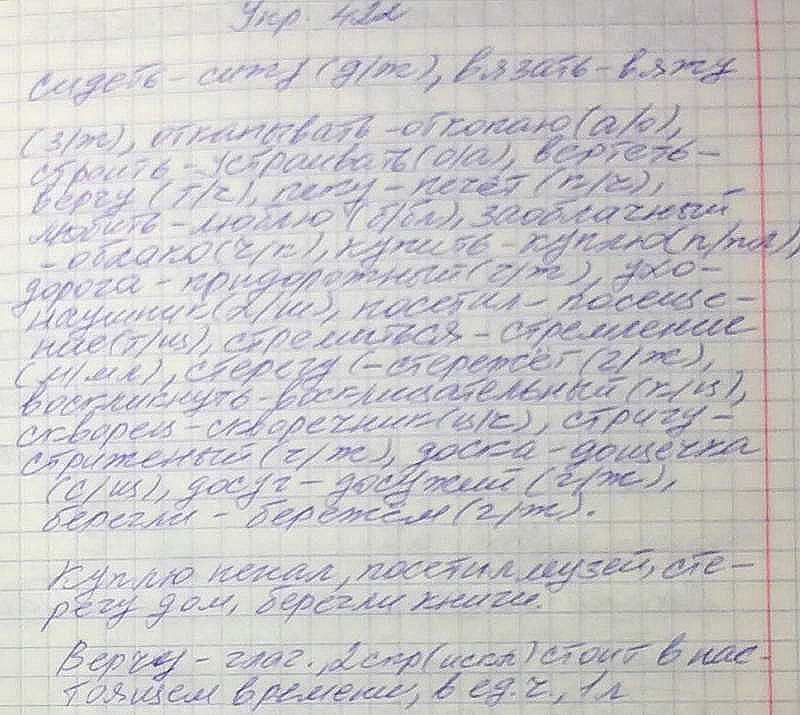 Упр. 422
сидеть - сижу (д/ж), вязать - вяжу
(з/ж), откапывать - откопаю (а/о),
строить - устраивать (о/а), вертеть -
верчу (т/ч), пеку - печёт (к/ч),
любить - люблю (б/бл), заоблачный
- облако (ч/к), купить - куплю (п/пл),
дорога - придорожный (г/ж), ухо -
наушник (х/ш), посетил - посеще-
ние (т/щ), стремиться - стремление
(м/мл), стерегу - стережёт (г/ж),
воскликнуть - восклицательный (к/ц),
скворец - скворечник (ц/ч), стригу -
стриженый (г/ж), доска - дощечка
(с/щ), досуг - досужий (г/ж),
берегли - бережём (г/ж).
Куплю пенал, посетил музей, сте-
регу дом, берегли книги.
Верчу - глаг., 2 спр (искл) стоит в нас-
тоящем времени, в ед. ч., 1 л